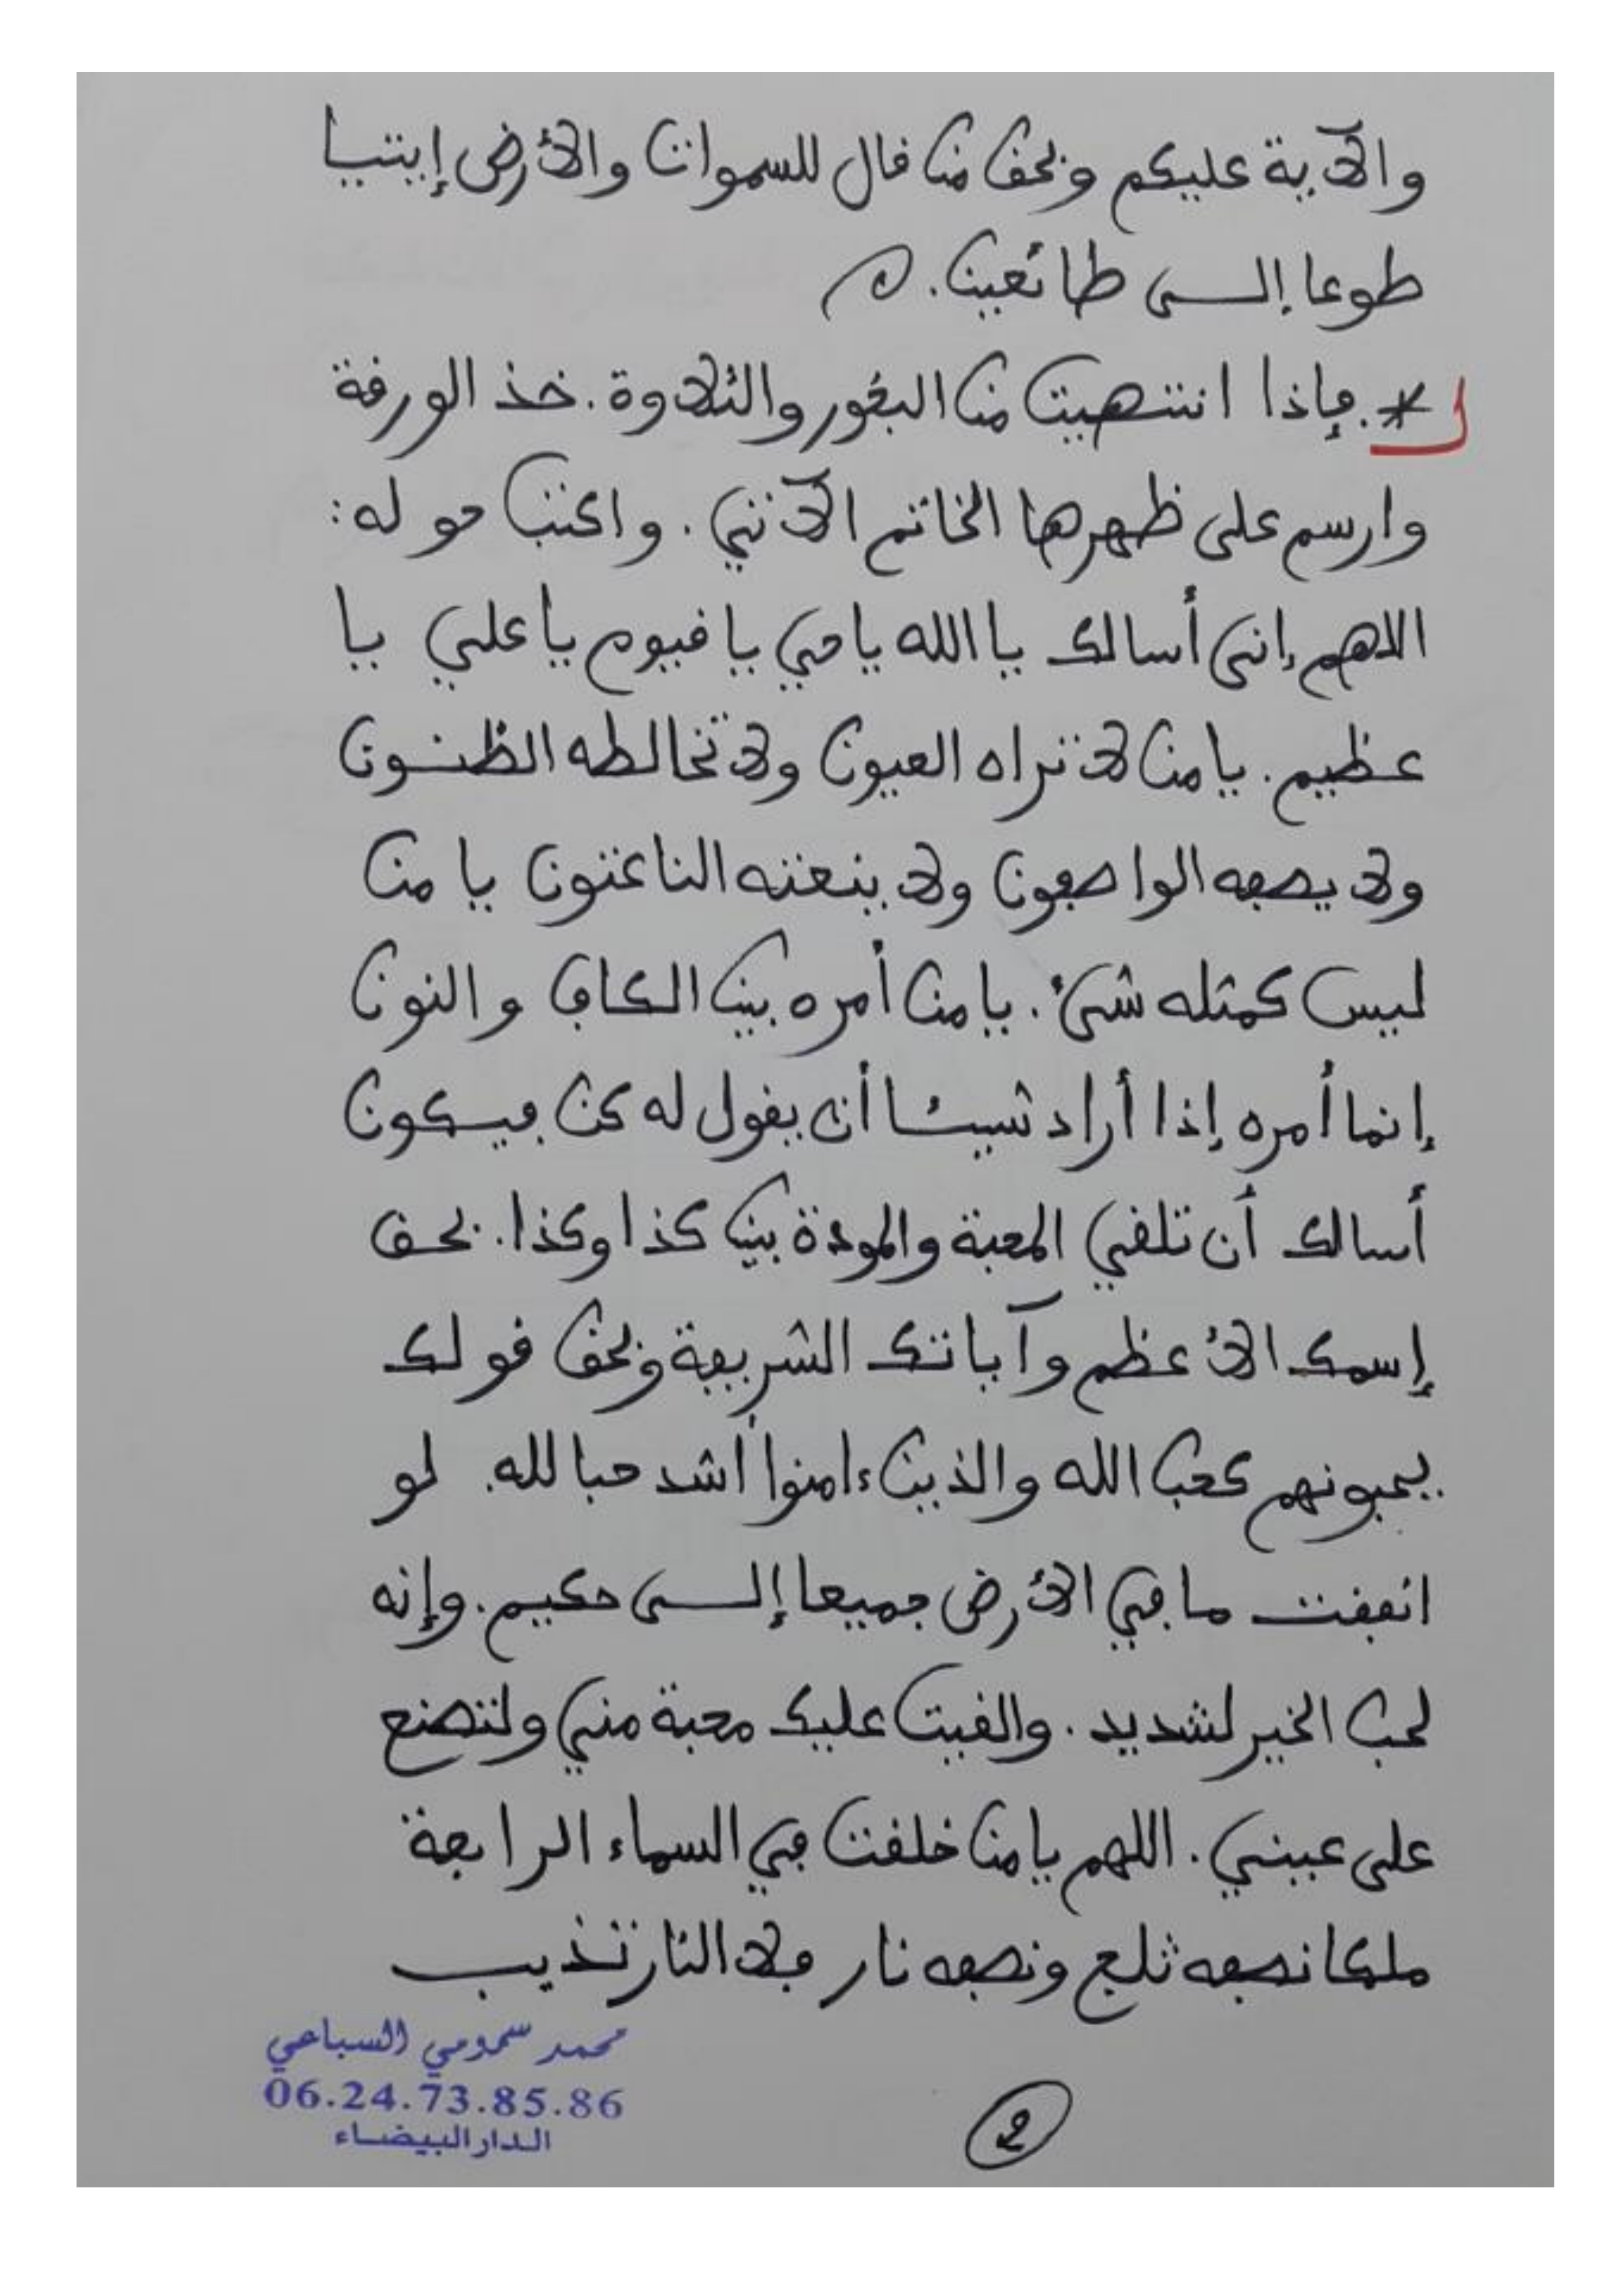 والآية عليكم وبحق من قال للسموات والأرض إيتيا
طوعا إلى طائعين.
*. فإذا انتهيت من البخور والتلاوة. خذ الورقة
وارسم على ظهرها الخاتم الآتي. واكتب حوله:
اللاهم إني أسالك يا الله يا حي يا قيوم يا علي يا
عظيم. يا من لا تراه العيون ولا تخالطه الظنون
ولا يصفه الواصفون ولا ينعته الناعتون يا من
ليس كمثله شيء. يا من أمره بين الكاف والنون
إنما أمره إذا أراد شيئا أن يقول له كن فيكون
أسالك أن تلقي المحبة والمودة بين كذا وكذا. بحق
إسمك الأعظم وآياتك الشريفة وبحق قولك
يحبونهم كحب الله والذين ءامنوا أشد حبا لله. لو
انفقت ما في الأرض جميعا إلى حكيم. وإنه
لحب الخير لشديد. والقيت عليك محبة مني ولتصنع
على عيني. اللهم يا من خلقت في السماء الرابعة
ملكا نصفه ثلج ونصفه نار فلا النار تذيب
محمد سمومي السباعي
06.24.73.85.86
الدار البيضاء
2